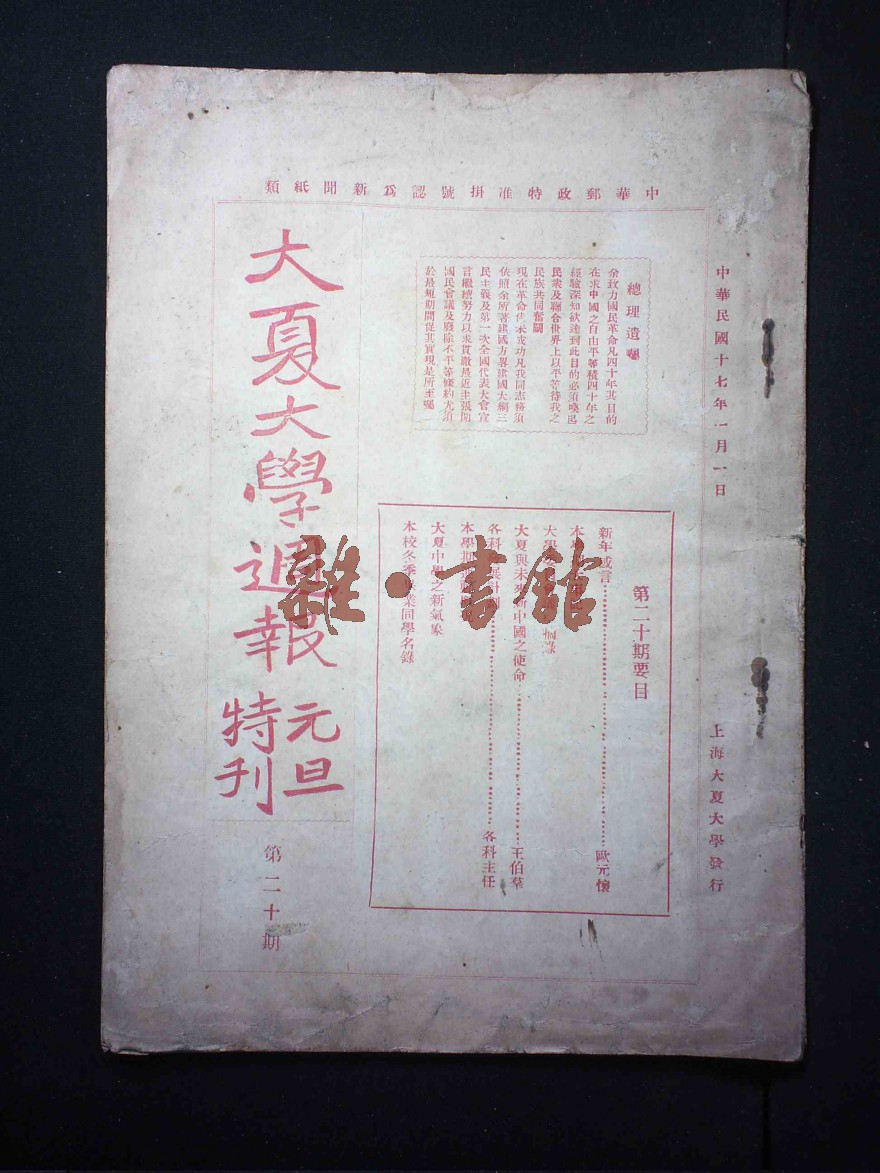 中華郵政特准掛號認爲新聞紙類
中華民國十七年一月一日
上海大夏大學發行
總理遺囑
余致力國民革命凡四十年其目的
在求中國之自由平等積四十年之
經驗深知欲達到此目的必須喚起
民衆及聯合世界上以平等待我之
民族共同奮鬭
現在革命尚未成功凡我同志務須
依照余所著建國方畧建國大綱三
民主義及第一次全國代表大會宣
言繼續努力以求貫澈最近主張開
國民會議及廢除不平等條約尤須
於最短期間促其實現是所至囑
第二十期要目
新年感言……歐元懷
本校
大學
大夏與未來新中國之使命……王伯羣
各科發展計劃……各科主任
本學期
大夏中學之新氣象
本校冬季畢業同學名錄
大夏大學週報
元旦
特刊
第二十期
雜·書館